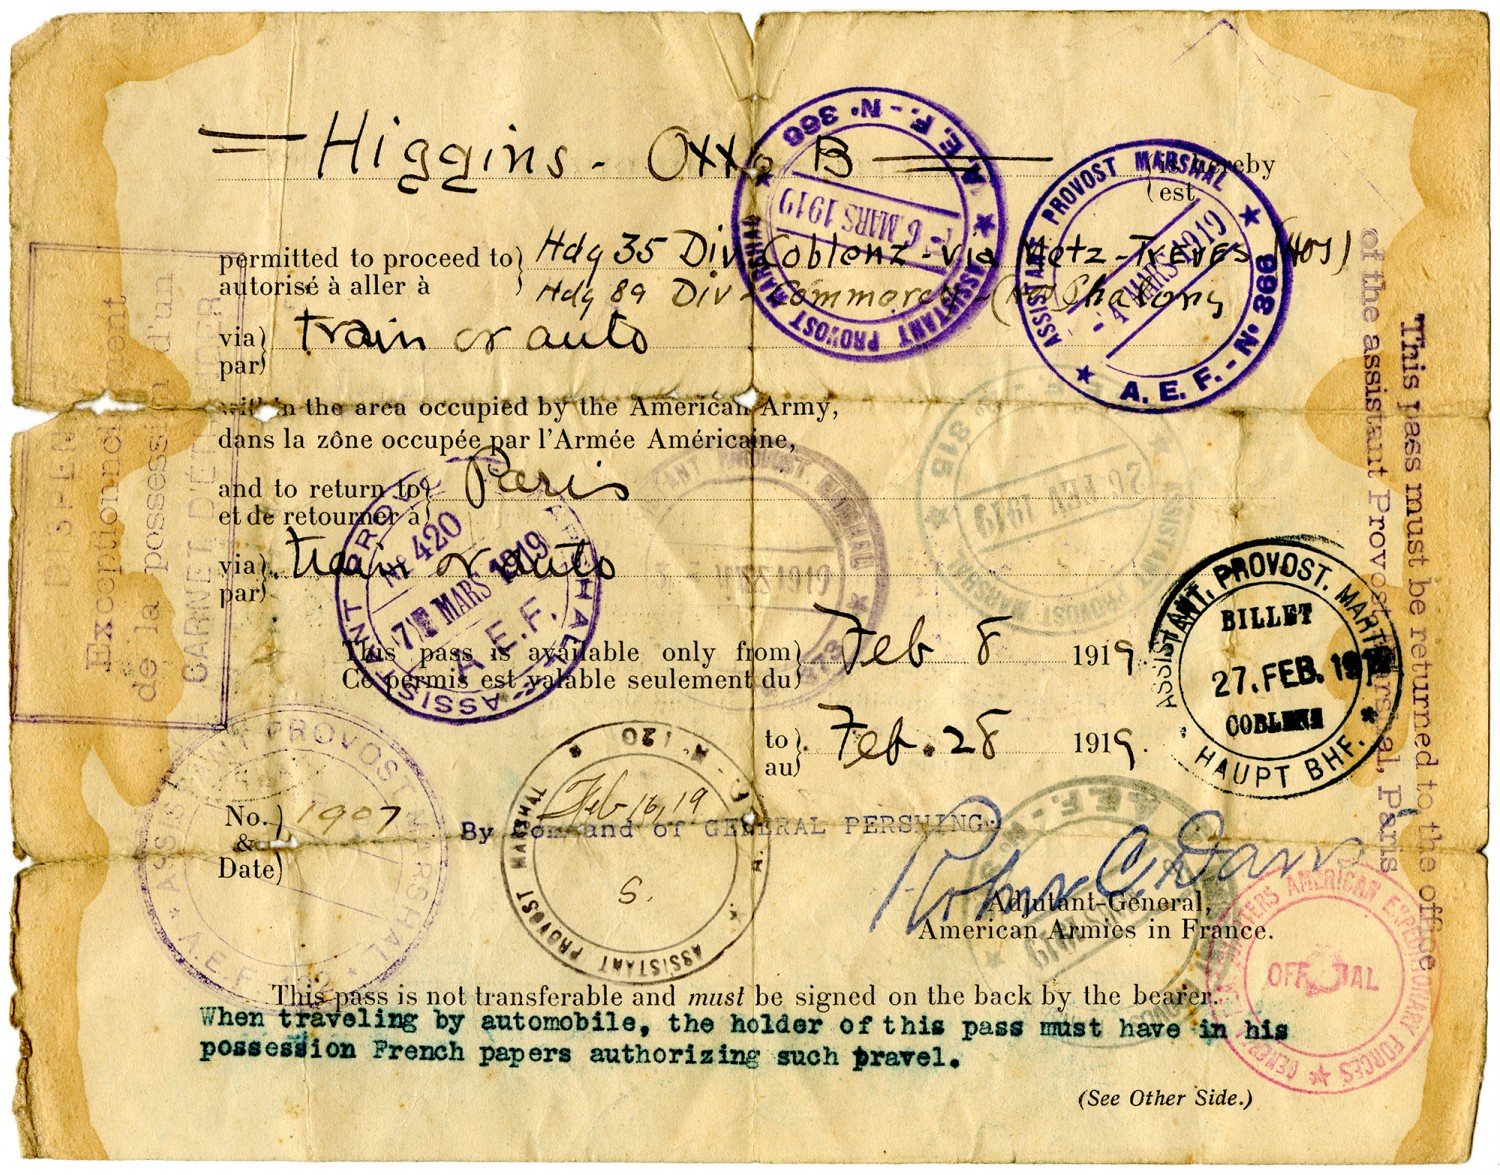 Higgins - Otto B
(is hereby
(est
permitted to proceed to) Hdq 35 Div Coblenz - via Metz - Treves (HOJ)
autorisé à aller à } Hdq 89 Div - Commercy -
via) train or auto
par)
within the area occupied by the American Army,
dans la zône occupée par l'Armée Américaine,
and to return to) Paris
et de retourner à)
via) train or auto
par)
This pass is available only from) Feb 8 1919.
Ce permis est valable seulement du)
to) Feb. 28 1919.
au)
No.) 1907
&
Date)
By command of GENERAL PERSHING:
Adjutant-General,
American Armies in France.
This pass is not transferable and must be signed on the back by the bearer.
When traveling by automobile, the holder of this pass must have in his
possession French papers authorizing such travel.
(See Other Side.)
This pass must be returned to the office
of the assistant Provost Marshal, Paris
Exceptionnel
de la possession d'un
CARNET D'ÉTRANGER
ASSISTANT PROVOST MARSHAL
A. E. F. - No. 366
6 MARS 1919
ASSISTANT PROVOST MARSHAL
A. E. F. - No 366
- 4 MARS 1919
ASSISTANT PROVOST MARSHAL
815
26 FEV 1919
ASSISTANT PROVOST MARSHAL
1919
ASSISTANT PROVOST MARSHAL
No 420
7 MARS 1919
A. E. F.
ASSISTANT. PROVOST. MARSHAL
BILLET
27. FEB. 191
COBLENZ
HAUPT BHF.
ASSISTANT PROVOST MARSHAL
A. E. F.
ASSISTANT PROVOST MARSHAL
120
Feb 16, 19
S.
A. E. F.
1919
GENERAL HEADQUARTERS AMERICAN EXPEDITIONARY FORCES
OFFICIAL